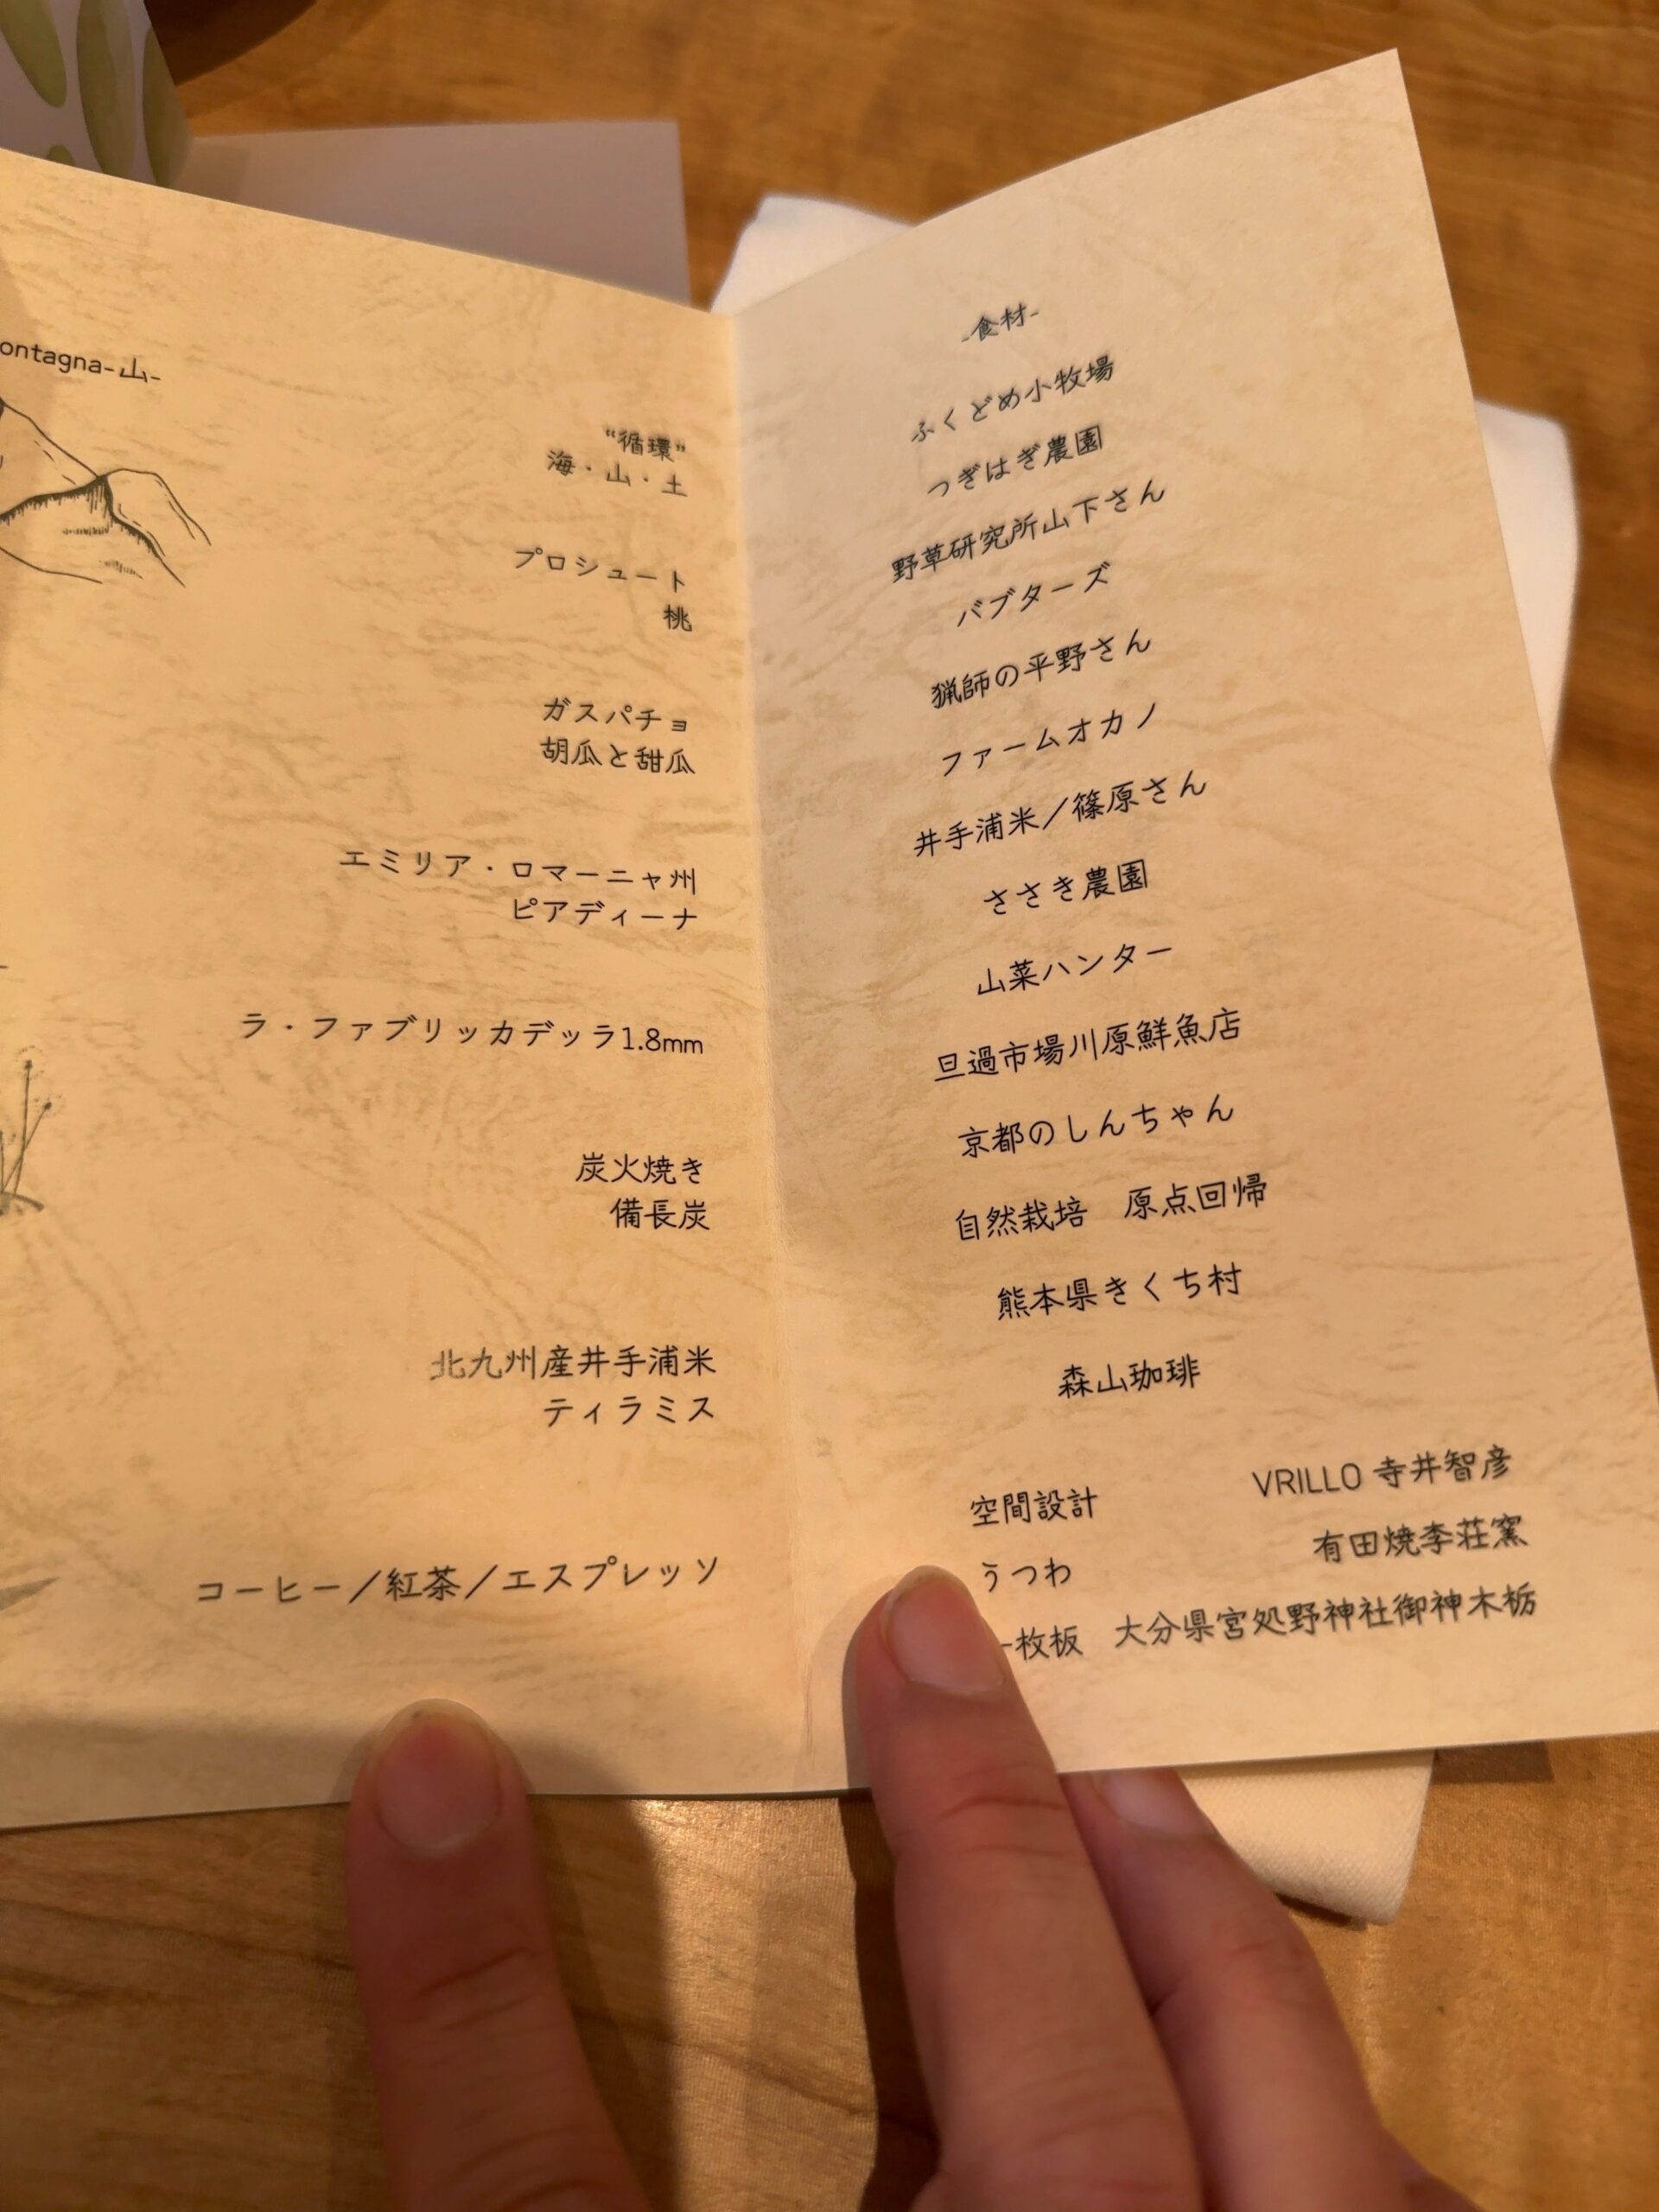 ontagna-山-
“循環”
海・山・土
プロシュート
桃
ガスパチョ
胡瓜と甜瓜
エミリア・ロマーニャ州
ピアディーナ
ラ・ファブリッカデッラ1.8mm
炭火焼き
備長炭
北九州産井手浦米
ティラミス
コーヒー／紅茶／エスプレッソ
-食材-
ふくどめ小牧場
つぎはぎ農園
野草研究所山下さん
バブターズ
猟師の平野さん
ファームオカノ
井手浦米／篠原さん
ささき農園
山菜ハンター
旦過市場川原鮮魚店
京都のしんちゃん
自然栽培　原点回帰
熊本県きくち村
森山珈琲
空間設計　VRILLO 寺井智彦
うつわ　有田焼李荘窯
一枚板　大分県宮処野神社御神木栃